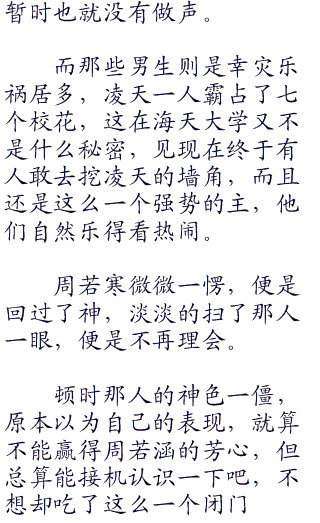 暂时也就没有做声。
而那些男生则是幸灾乐
祸居多，凌天一人霸占了七
个校花，这在海天大学又不
是什么秘密，见现在终于有
人敢去挖凌天的墙角，而且
还是这么一个强势的主，他
们自然乐得看热闹。
周若寒微微一愣，便是
回过了神，淡淡的扫了那人
一眼，便是不再理会。
顿时那人的神色一僵，
原本以为自己的表现，就算
不能赢得周若涵的芳心，但
总算能接机认识一下吧，不
想却吃了这么一个闭门